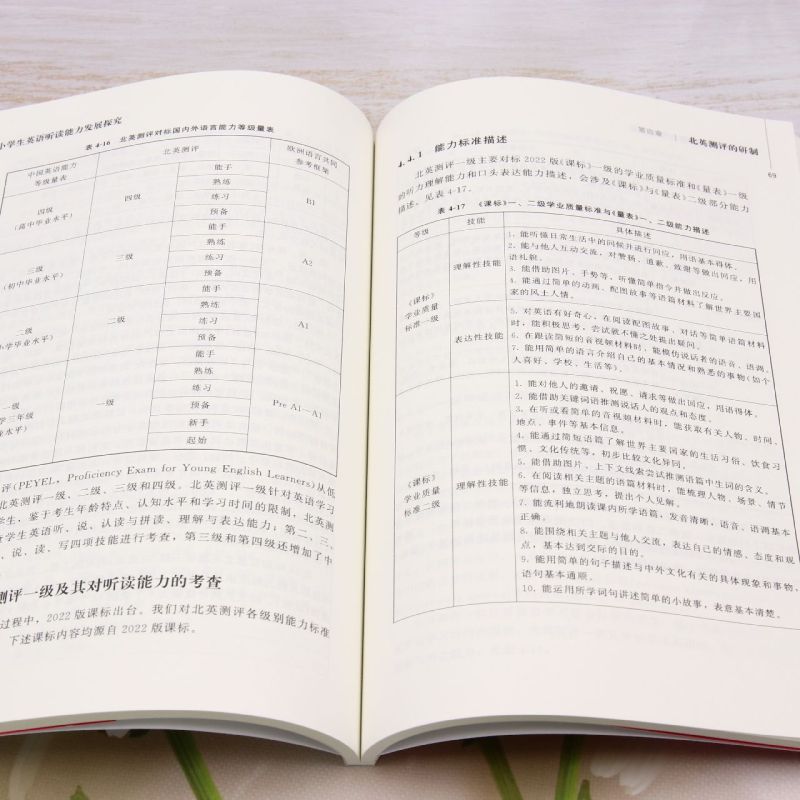 小学生英语听读能力发展探究
表 4-16 北英测评对标国内外语言能力等级量表
中国英语能力
等级量表
北英测评
欧洲语言共同
参考框架
四级
(高中毕业水平)
四级
能手
熟练
练习
预备
B1
三级
(初中毕业水平)
三级
能手
熟练
练习
预备
A2
二级
小学毕业水平)
二级
能手
熟练
练习
预备
A1
一级
学三年级
业水平)
一级
能手
熟练
练习
预备
新手
起始
Pre A1—A1
评(PEYEL, Proficiency Exam for Young English Learners)从低
北英测评一级、二级、三级和四级。北英测评一级针对英语学习
学生,鉴于考生年龄特点、认知水平和学习时间的限制,北英测
查学生英语听、说、认读与拼读、理解与表达能力;第二、三、
、说、读、写四项技能进行考查,第三级和第四级还增加了中
测评一级及其对听读能力的考查
过程中,2022 版课标出台。我们对北英测评各级别能力标准
下述课标内容均源自 2022 版课标。
第四章 北英测评的研制
69
4.4.1 能力标准描述
北英测评一级主要对标 2022 版《课标》一级的学业质量标准和《量表》一级
的听力理解能力和口头表达能力描述,会涉及《课标》与《量表》二级部分能力
描述,见表 4-17。
表 4-17 《课标》一、二级学业质量标准与《量表》一、二级能力描述
等级
技能
具体描述
《课标》
学业质量
标准一级
理解性技能
1. 能听懂日常生活中的问候并进行回应,用语基本得体。
2. 能与他人互动交流,对赞扬、道歉、致谢等做出回应,用
语礼貌。
3. 能借助图片、手势等,听懂简单指令并做出反应。
4. 能通过简单的动画、配图故事等语篇材料了解世界主要国
家的风土人情。
表达性技能
5. 对英语有好奇心,在阅读配图故事、对话等简单语篇材料
时,能积极思考,尝试就不懂之处提出疑问。
6. 在跟读简短的音视频材料时,能模仿说话者的语音、语调。
7. 能用简单的语言介绍自己的基本情况和熟悉的事物(如个
人喜好、学校、生活等)。
《课标》
学业质量
标准二级
理解性技能
1. 能对他人的邀请、祝愿、请求等做出回应,用语得体。
2. 能借助关键词语推测说话人的观点和态度。
3. 在听或看简单的音视频材料时,能获取有关人物、时间、
地点、事件等基本信息。
4. 能通过简短语篇了解世界主要国家的生活习俗、饮食习
惯、文化传统等,初步比较文化异同。
5. 能借助图片、上下文线索尝试推测语篇中生词的含义。
6. 在阅读相关主题的语篇材料时,能梳理人物、场景、情节
等信息,独立思考,提出个人见解。
7. 能流利地朗读课内所学语篇,发音清晰,语音、语调基本
正确。
8. 能围绕相关主题与他人交流,表达自己的情感、态度和观
点,基本达到交际的目的。
9. 能用简单的句子描述与中外文化有关的具体现象和事物,
语句基本通顺。
10. 能运用所学词句讲述简单的小故事,表意基本清楚。